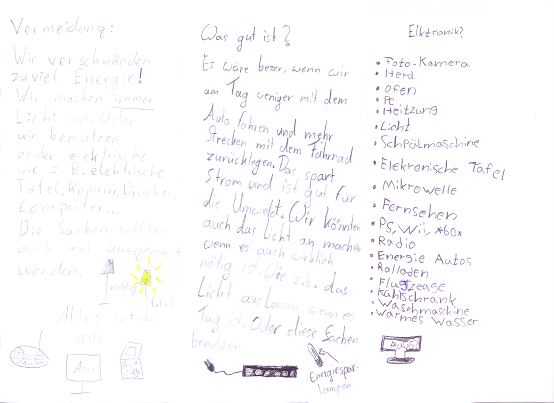 Vermeidung:
Wir verschwänden
zuviel Energie!
Wir machen immer
Licht an. Oder
wir benutzen
elektrische
wie z.B. elektrische
Tafel, Kopierer, Drucker,
Computer...
Die Sachen sollten
auch mal ausgemacht
werden.
Alles ist
aus
Aus
Was gut ist?
Es wäre beser, wenn wir
am Tag weniger mit dem
Auto fahren und mehr
Strecken mit dem Fahrrad
zurücklegen. Das spart
Strom und ist gut für
die Umwelt. Wir könnten
auch das Licht an machen
wenn es auch wirklich
nötig ist. Wie z.b. das
Licht auslassen wenn es
Tag ist. Oder diese Sachen
benutzen
Energiespar-
Lampen
Elktronik?
• Foto-Kamera
• Herd
• Ofen
• PC
• Heitzung
• Licht
• Schpülmaschine
• Elekronische Tafel
• Mikrowelle
• Fernsehen
• PS, Wii, xbox
• Radio
• Energie Autos
• Rolladen
• Flugzeuge
• Kühlschrank
• Waschmaschine
• Warmes Wasser